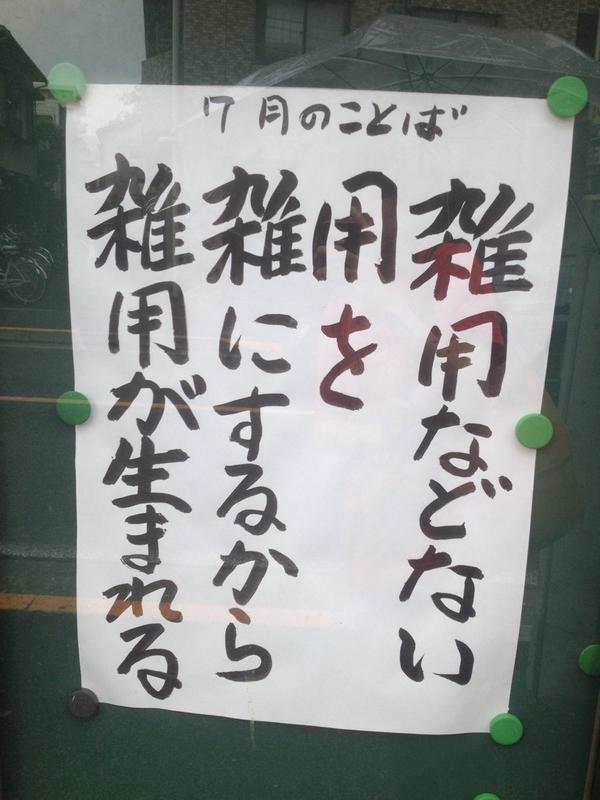 7月のことば
雑用などない
用を
雑にするから
雑用が生まれる